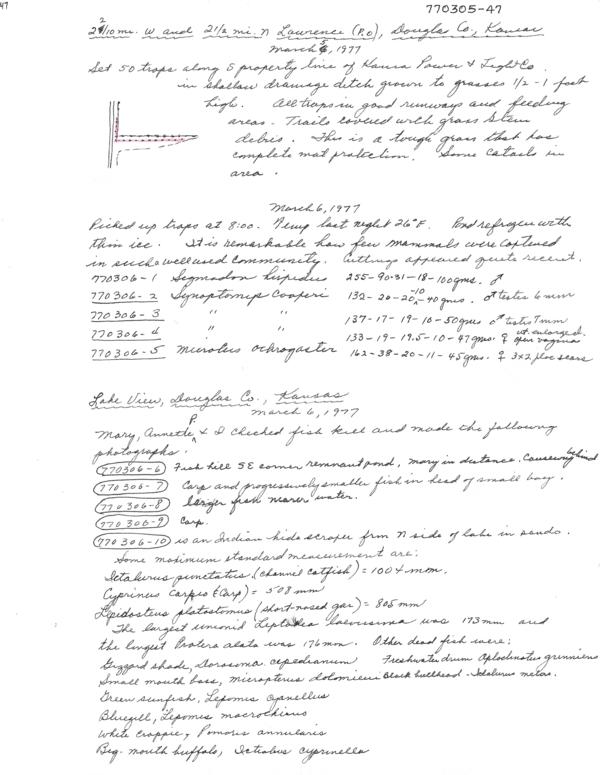 47
770305-47
2 2/10 mi. W and 2 1/2 mi. N Lawrence (P.O), Douglas Co., Kansas
March 5, 1977
Set 50 traps along S property line of Kansa Power & Light Co.
in shallow drainage ditch grown to grasses 1/2 - 1 foot
high. All traps in good runways and feeding
areas. Trails covered with grass stem
debris. This is a tough grass that has
complete mat protection. Some catails in
area.
March 6, 1977
Picked up traps at 8:00. Temp last neght 26°F. Pond refrozen with
thin ice. It is remarkable how few mammals were captured
in such a well used community. Cuttings appeared quite recent.
770306-1 Sigmadon hispidus 255-90-31-18-100gms. ♂
770306-2 Synoptomys Cooperi 132-20-20-10-40gms. ♂ testes 6mm
770306-3 " " 137-17-19-10-50gms ♂ testes 7mm
770306-4 " " 133-19-19.5-10-47gms. ♀ ut. enlarged. open vagina
770306-5 Microtus Ochrogaster 162-38-20-11-45gms. ♀ 3x2 plac scars
Lake View, Douglas Co., Kansas
March 6, 1977
Mary, Annette P. & I checked fish kill and made the following
photographs.
770306-6 Fish kill SE corner remnant pond, Mary in distance. Causeway behind
770306-7 Carp and progressively smaller fish in head of small bay.
770306-8 larger fish nearer water.
770306-9 Carp.
770306-10 is an Indian hide scraper frm N side of lake in sands.
Some maximum standard measurement are:
Ictalurus punctatus (channel catfish) = 1004 mm.
Cyprinus Carpio (Carp) = 508 mm
Lepidosteus platostomus (short nosed gar) = 805 mm
The largest unionid Leptodea laevissima was 173mm and
the largest Protera alata was 176mm. Other dead fish were:
Gizzard shade, Dorosoma cepedianum. Freshwater drum Aplodinotus grunniens
Small mouth bass, Micropterus dolomieui Black bullhead - Ictalurus melas.
Green sunfish, Lepomis cyanellus
Bluegill, Lepomis macrochirus
White crappie, Pomoxis annularis
Big. mouth buffalo, Ictiobus cyprinella